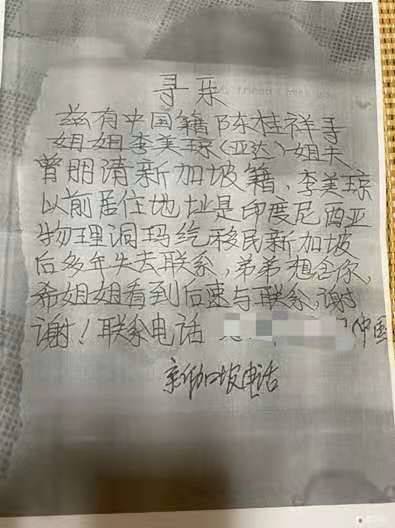 寻亲
兹有中国籍陈桂祥寻
姐姐李美琼(亚达)姐夫
曾明清新加坡籍,李美琼
以前居住地址是印度尼西亚
物理洞玛纥移民新加坡
后多年失去联系,弟弟想念你,
希姐姐看到后速与联系,谢
谢!联系电话
中国
新加坡电话